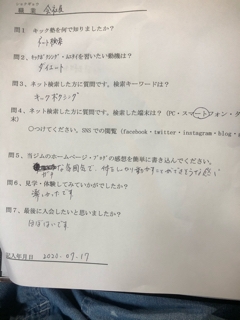 職業 会社員
問1 キック塾を何で知りましたか?
ネット検索
問2、キックボクシング・ムエタイを習いたい動機は?
ダイエット
問3、ネット検索した方に質問です。検索キーワードは?
キックボクシング
問4、ネット検索した方に質問です、検索した端末は? (PC・スマートフォン・タ
末)
○つけてください、SNSでの閲覧 (facebook・twitter・instagram・blog・
問5、当ジムのホームページ・ブログの感想を簡単に書き込んでください。
な雰囲気で、
問6、見学・体験してみていかがでしたか?
楽しかったです
問7、最後に入会したいと思いましたか?
はい
記入年月日 2020.07.17